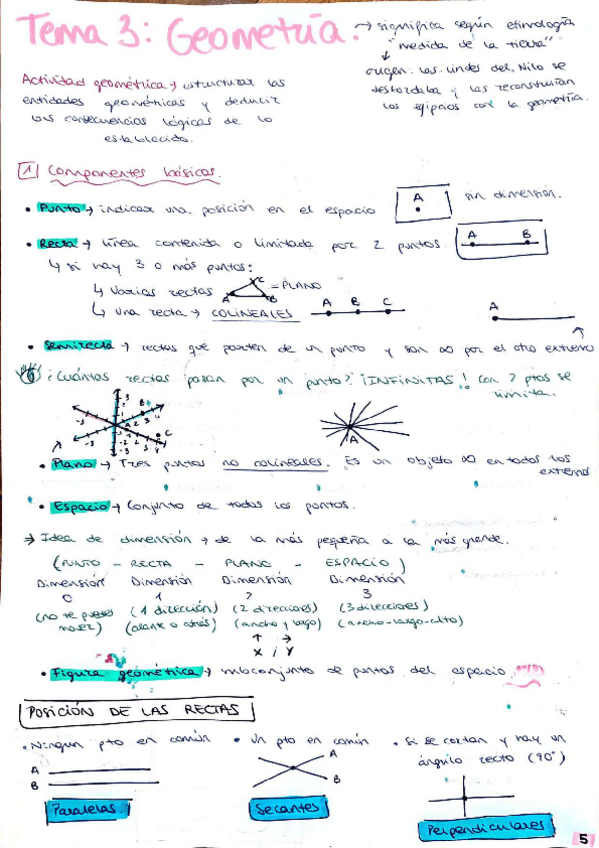 Tema 3: Geometría. → significa según etimología
"medida de la tierra"
Actividad geométrica → estructurar las
entidades geométricas y deducir
las consecuencias lógicas de lo
establecido.
origen. Las lindes del Nilo se
desbordaba y las reconstruían
los egipcios con la geometría.
1 Componentes básicos.
• Punto → indicar una posición en el espacio
A
sin dimensión.
• Recta → línea contenida o limitada por 2 puntos.
A B
↳ si hay 3 o más puntos:
↳ varias rectas A B C = PLANO
↳ una recta → COLINEALES A B C
A
• Semirecta → rectas que parten de un punto y son ∞ por el otro extremo
¿Cuántas rectas pasan por un punto? ¡INFINITAS! Con 2 ptos se
limita.
A
• Plano → Tres puntos no colineales. Es un objeto ∞ en todos los
extremos
• Espacio → Conjunto de todos los puntos.
⇒ Idea de dimensión → de la más pequeña a la más grande.
(PUNTO - RECTA - PLANO - ESPACIO)
Dimensión Dimensión Dimensión Dimensión
0 1 2 3
(no te puedes mover) (1 dirección) (2 direcciones) (3 direcciones)
(alante o atrás) (ancho y largo) (ancho-largo-alto)
↑ →
X / Y
• Figura geométrica → subconjunto de puntos del espacio.
POSICIÓN DE LAS RECTAS
• Ningun pto en común • Un pto en común • Si se cortan y hay un
ángulo recto (90°)
A
B
A
B
Paralelas Secantes Perpendiculares
5